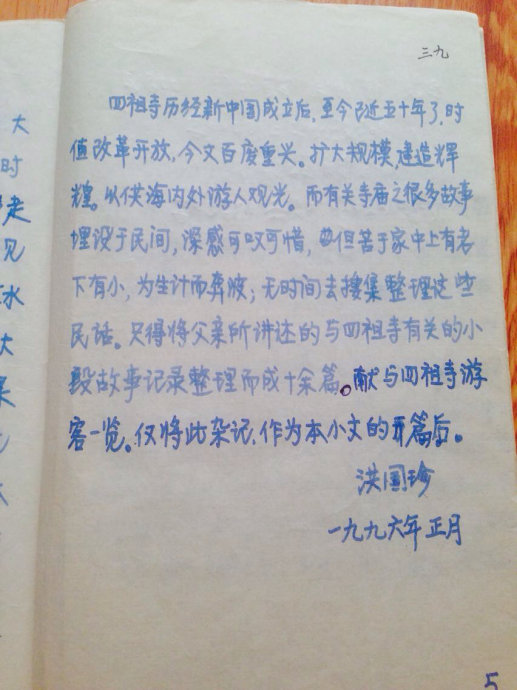 三九
四祖寺历经新中国成立后,至今已近五十年了,时
值改革开放,今文百废重兴。扩大规模,建造辉
煌。以供海内外游人观光。而有关寺庙之很多故事
埋没于民间,深感可叹可惜,但苦于家中上有老
下有小,为生计而奔波;无时间去搜集整理这些
民话。只得将父亲所讲述的与四祖寺有关的小
段故事记录整理而成十余篇。献与四祖寺游
客一览。仅将此杂记,作为本小文的开篇后。
洪国珍
一九九六年正月
大
时
走
见
水
大
果
5